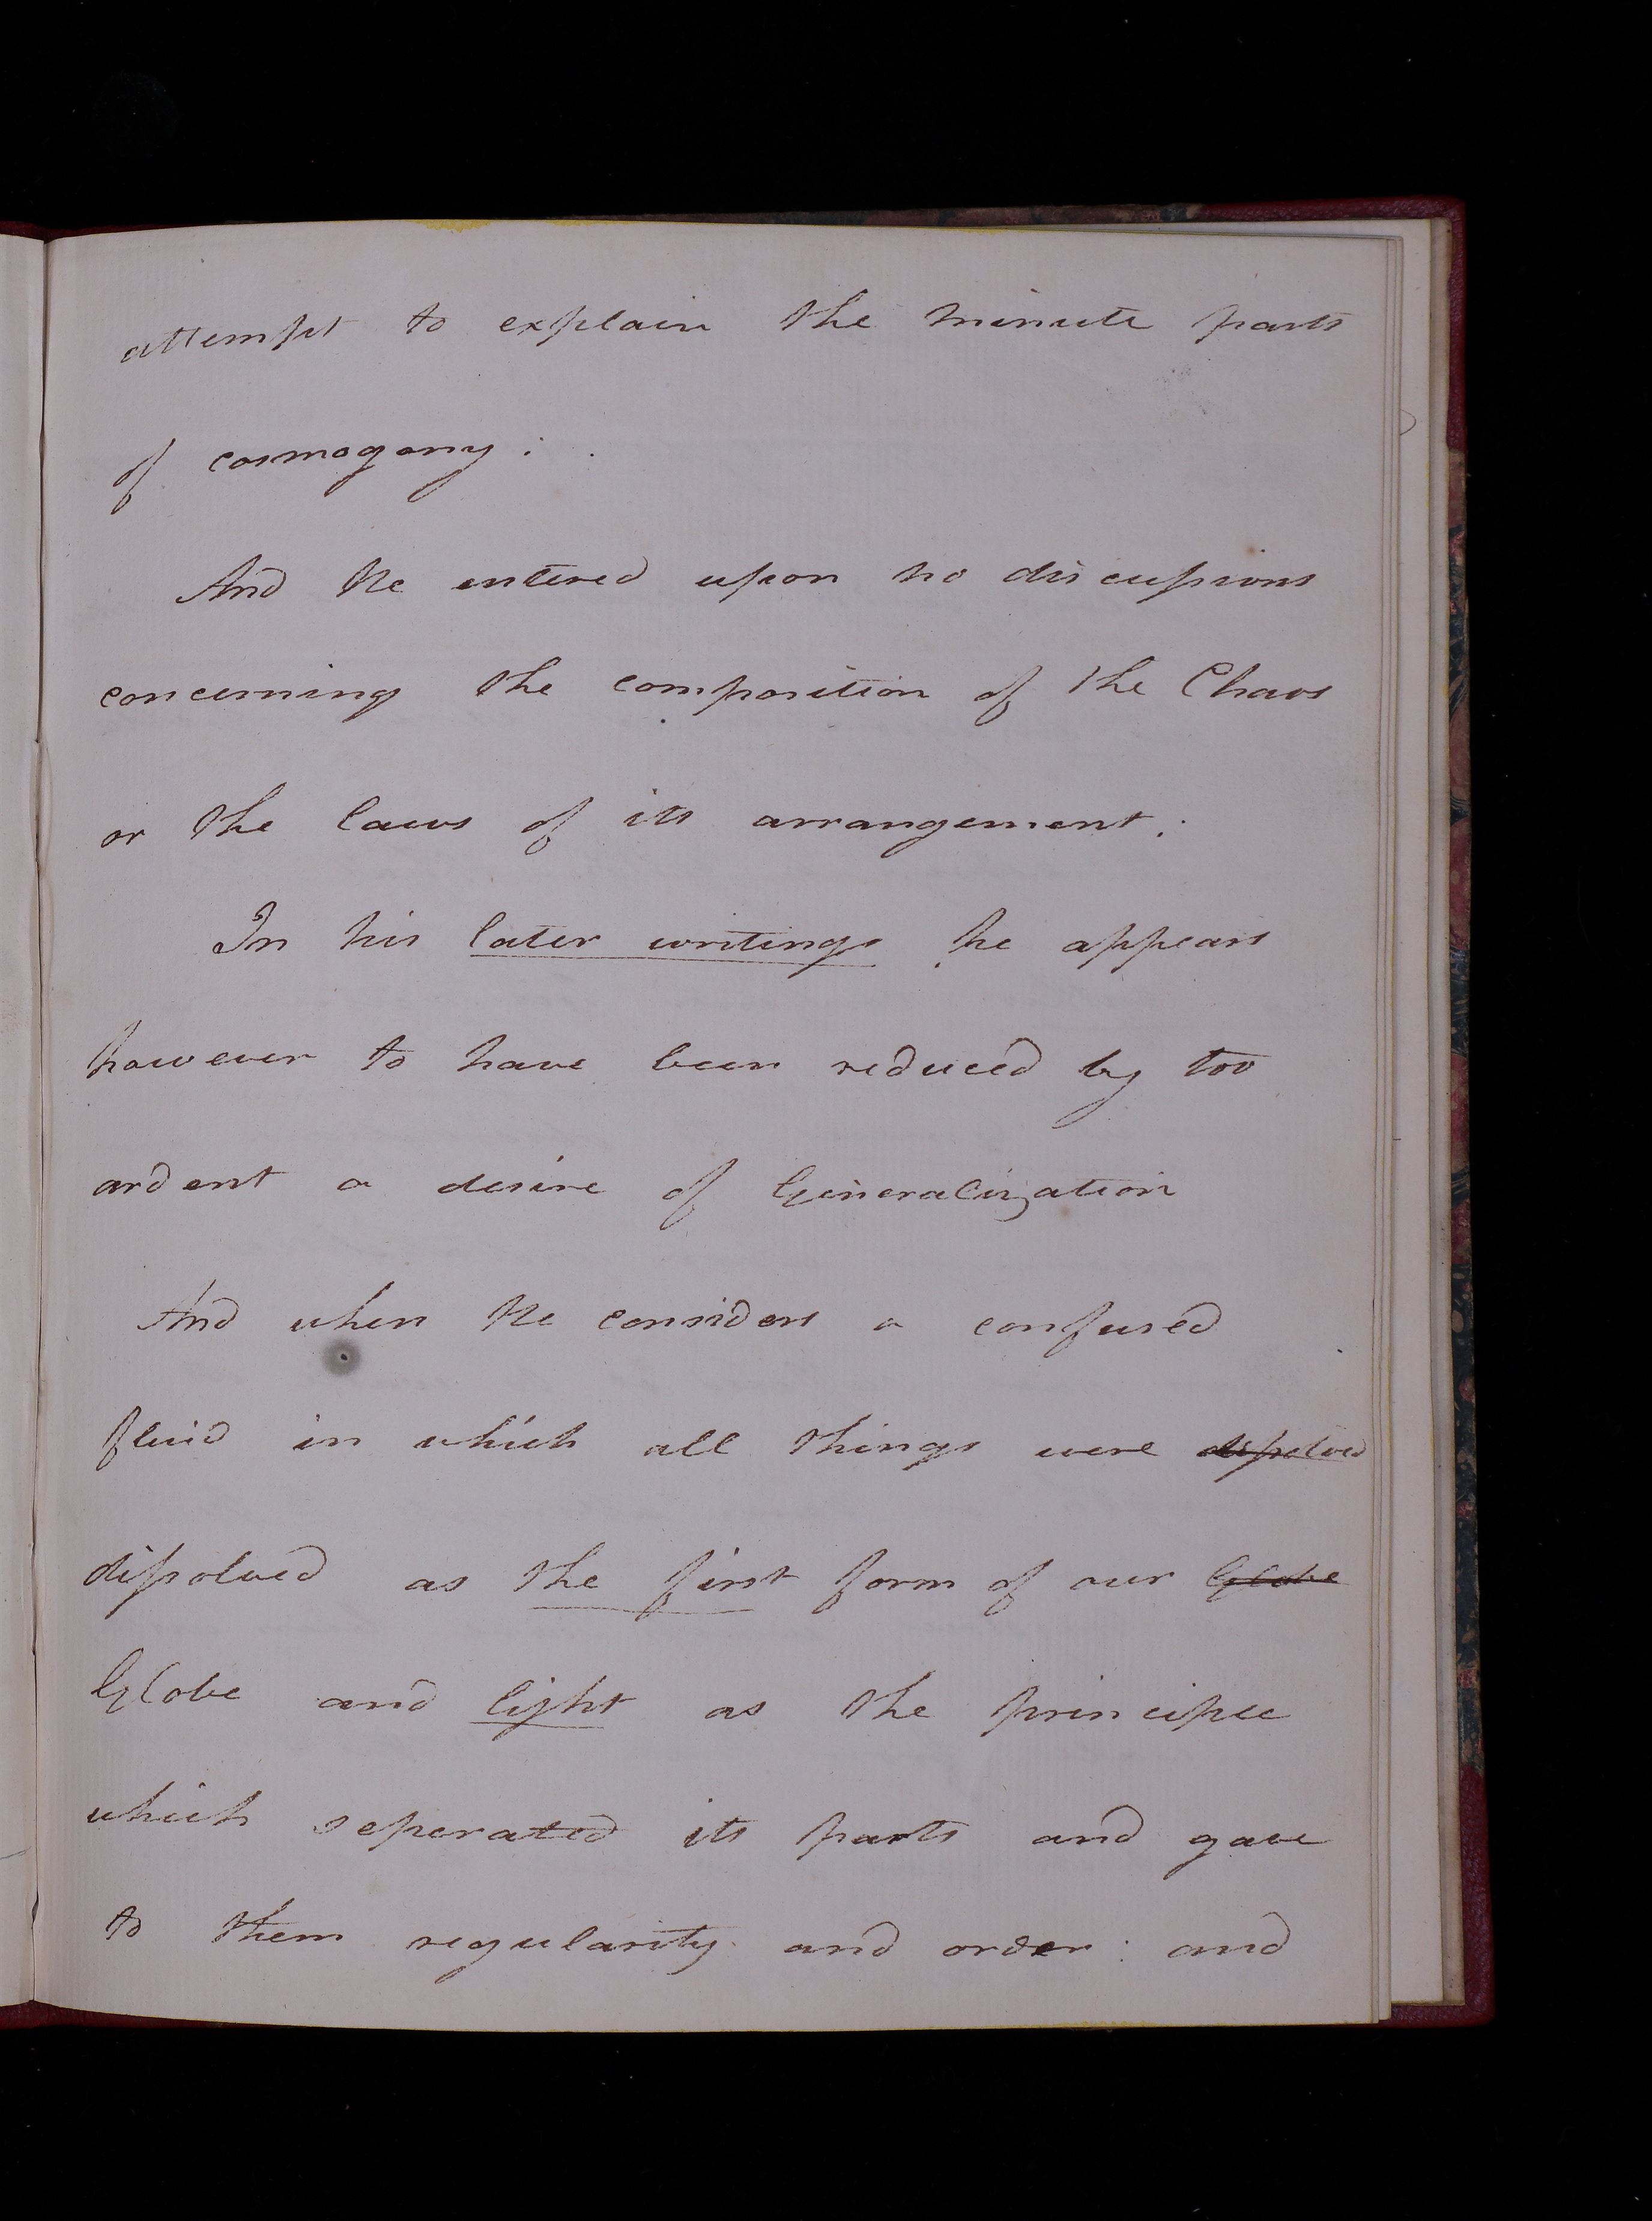 attempt to explain the minute parts
of cosmogony:
And He entered upon no discussions
concerning the composition of the Chaos
or the laws of its arrangement:
In his later writings he appears
however to have been seduced by too
ardent a desire of Generalization
And when He considers a confused
fluid in which all things were dissolved
dissolved as the first form of our Globe
Globe and light as the principle
which seperated its parts and gave
to them regularity and order: and